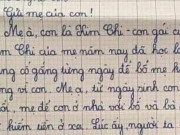 Gửi mẹ của con!
Mẹ à, con là Kim Chi - con gái c
Kim Chi của mẹ năm nay đã học l
ng cố gắng từng ngày để bố mẹ k
ng vì con. Mẹ ạ, từ ngày sinh con
ời, mẹ để con ở nhà với bố và bà
hiểm tiền ở xa. Lúc ấy, người ta